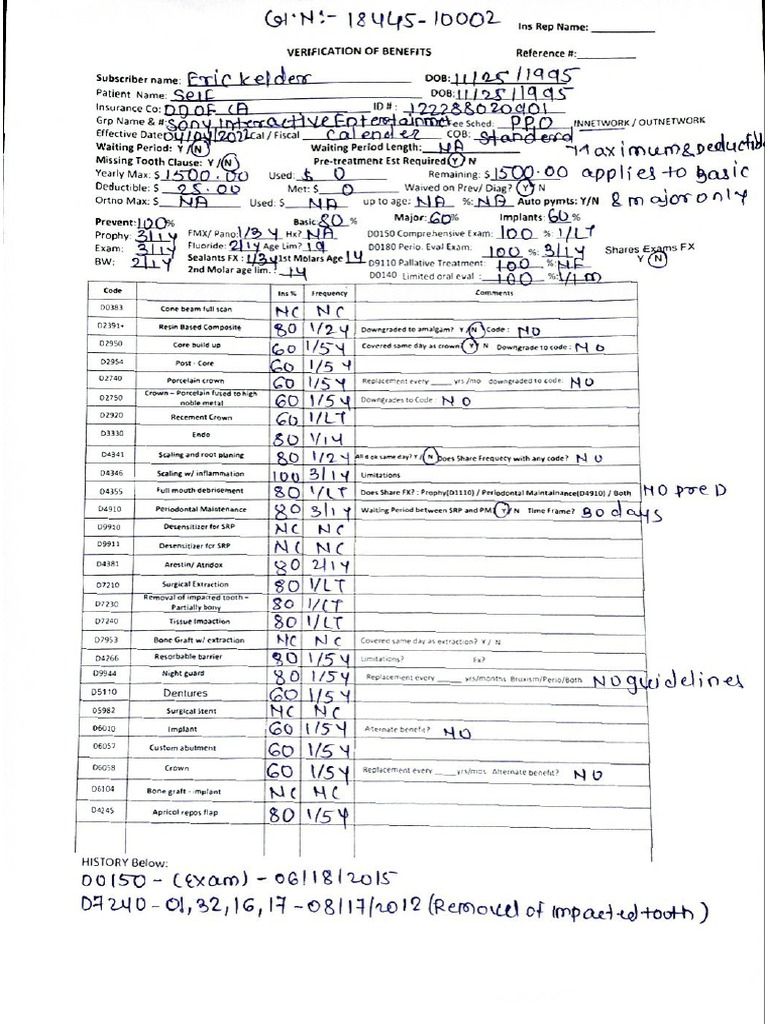 G.N:- 18445-10002
Ins Rep Name: ________
VERIFICATION OF BENEFITS Reference #: ______
Subscriber name: Eric Kelder DOB: 11/25/1995
Patient Name: Self DOB: 11/25/1995
Insurance Co: DD OF CA ID #: 122288020901
Grp Name & #: Sony Interactive Entertainment Fee Sched: PPO INNETWORK / OUTNETWORK
Effective Date: Cal / Fiscal Calender COB: Standerd
Waiting Period: Y / N Waiting Period Length: NA Maximum & deductible
Missing Tooth Clause: Y / N Pre-treatment Est Required Y / N
Yearly Max: $ 1500.00 Used: $ 0 Remaining: $ 1500.00 applies to basic
Deductible: $ 25.00 Met: $ 0 Waived on Prev/ Diag? Y N & major only
Ortho Max: $ NA Used: $ NA up to age: NA %: NA Auto pymts: Y/N
Prevent: 100 % Basic 80 % Major: 60 % Implants: 60 %
Prophy: 3/1Y FMX/ Pano: 1/3Y Hx? NA D0150 Comprehensive Exam: 100 %: 1/LT
Exam: 3/1Y Fluoride: 2/1Y Age Lim? 19 D0180 Perio. Eval Exam: 100 %: 3/1Y Shares Exams FX
BW: 2/1Y Sealants FX: 1/3Y 1st Molars Age 14 D9110 Pallative Treatment: 100 %: NF Y N
2nd Molar age lim. : 14 D0140 Limited oral eval : 100 %: 1/1m
Code Ins % Frequency Comments
D0383 Cone beam full scan NC NC
D2391+ Resin Based Composite 80 1/2Y Downgraded to amalgam? Y / N Code : NO
D2950 Core build up 60 1/5Y Covered same day as crown Y N Downgrade to code : NO
D2954 Post - Core 60 1/5Y
D2740 Porcelain crown 60 1/5Y Replacement every ____ yrs /mo downgraded to code: NO
D2750 Crown – Porcelain fused to high noble metal 60 1/5Y Downgrades to Code : NO
D2920 Recement Crown 60 1/LT
D3330 Endo 80 1/1Y
D4341 Scaling and root planing 80 1/2Y All 4 ok same day? Y / N Does Share Frequecy with any code? NO
D4346 Scaling w/ inflammation 100 3/1Y Limitations
D4355 Full mouth debridement 80 1/LT Does Share FX? : Prophy(D1110) / Periodontal Maintainance(D4910) / Both NO pre D
D4910 Periodontal Maintenance 80 3/1Y Waiting Period between SRP and PM? Y / N Time Frame? 90 days
D9910 Desensitizer for SRP NC NC
D9911 Desensitizer for SRP NC NC
D4381 Arestin/ Atridox 80 2/1Y
D7210 Surgical Extraction 80 1/LT
D7230 Removal of impacted tooth – Partially bony 80 1/LT
D7240 Tissue Impaction 80 1/LT
D7953 Bone Graft w/ extraction NC NC Covered same day as extraction? Y / N
D4266 Resorbable barrier 80 1/5Y Limitations? Fx?
D9944 Night guard 80 1/5Y Replacement every ____ yrs/months Bruxism/Perio/Both NO guidelines
D5110 Dentures 60 1/5Y
D5982 Surgical Stent NC NC
D6010 Implant 60 1/5Y Alternate benefit? NO
D6057 Custom abutment 60 1/5Y
D6058 Crown 60 1/5Y Replacement every ____yrs/mos Alternate benefit? NO
D6104 Bone graft - implant NC NC
D4245 Aprical repos flap 80 1/5Y
HISTORY Below:
D0150 - (Exam) - 06/18/2015
D7240 - 01, 32, 16, 17 - 08/17/2012 (Removel of impacted tooth)